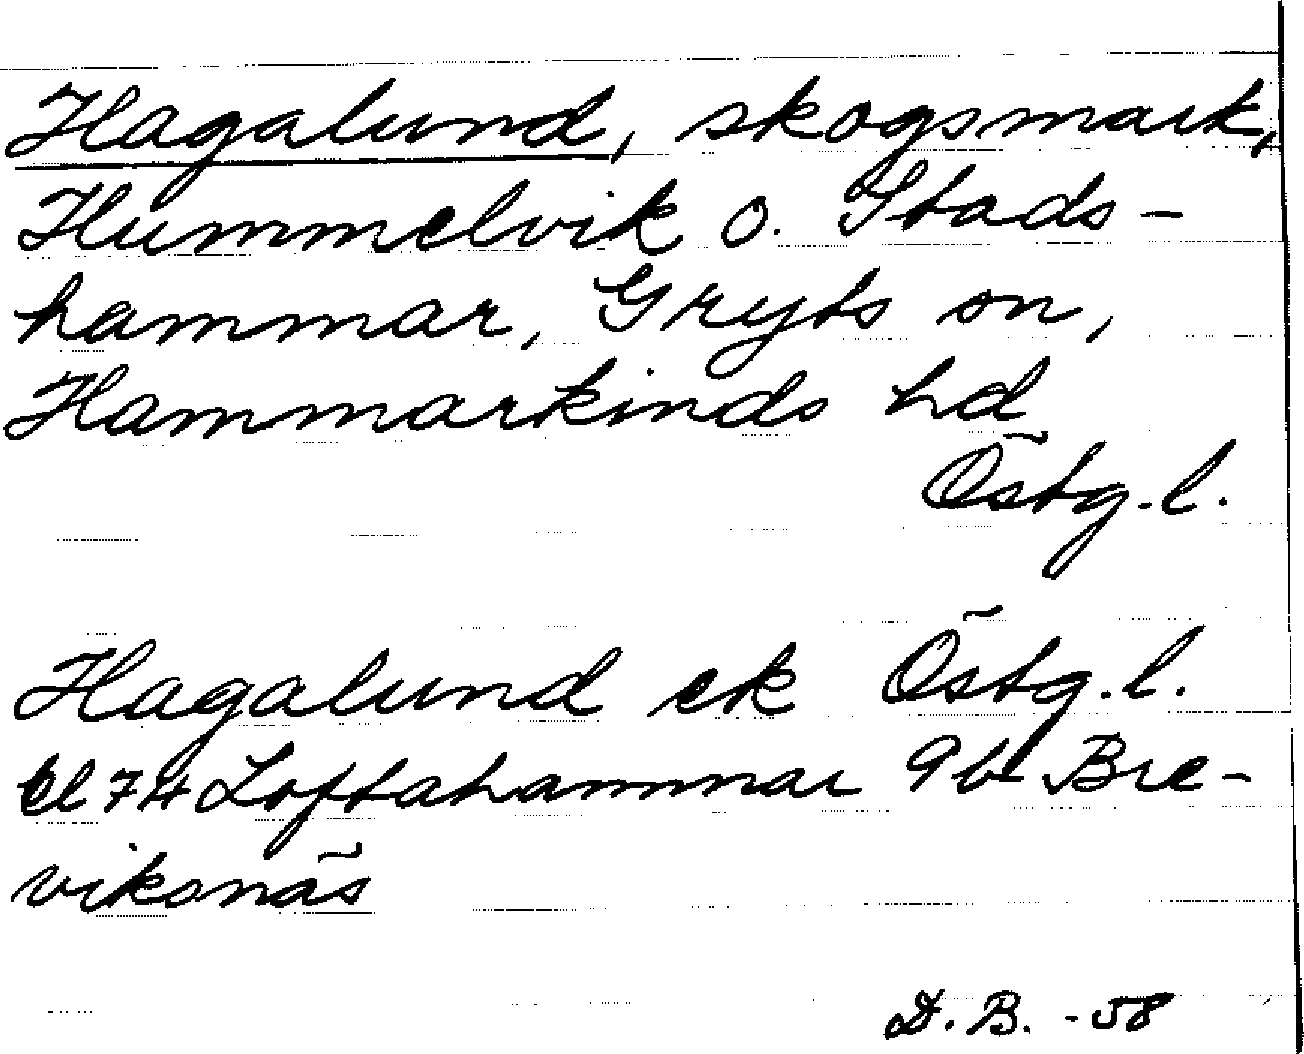 Hagalund, skogsmark,
Hummelvik o. Stads-
hammar, Gryts sn,
Hammarkinds hd
Östg. l.
Hagalund ek Östg. l.
bl 74 Loftahammar 9b Bre-
viksnäs
D. B. -58